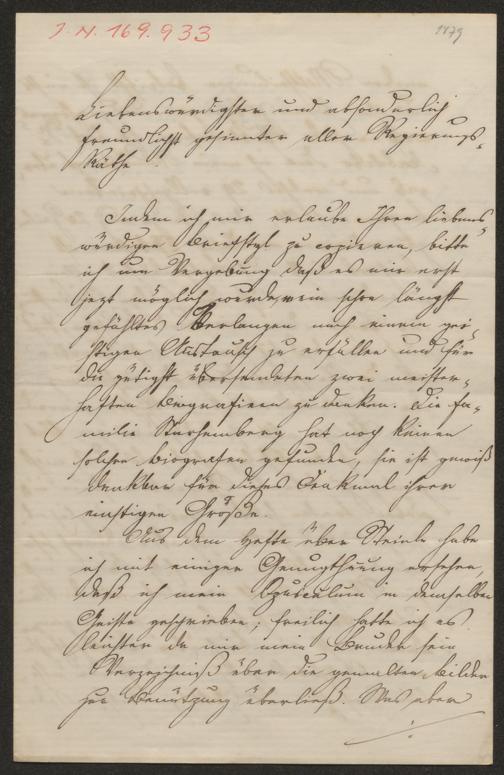 J. N. 169.933
1879
Liebenswürdigster und absonderlich
freundlichst gesinnter aller Regierungs-
Räthe
Indem ich mir erlaube Ihren liebens-
würdigen Briefstyl zu copieren, bitte
ich um Vergebung daß es mir erst
jetzt möglich wurde, mein schon längst
gefühltes Verlangen nach einem gei-
stigen Austausch zu erfüllen und für
die gütigst übersendeten zwei meister-
haften Biografieen zu danken. Die Fa-
milie Starhemberg hat noch keinen
solchen Biografen gefunden, sie ist gewiß
dankbar für dieses Denkmal ihrer
einstigen Größe.
Aus dem Hefte über Steinle habe
ich mit einiger Genugthuung ersehen,
daß ich mein Opusculum in demselben
Geiste geschrieben; freilich hatte ich es
leichter da mir mein Bruder sein
Verzeichniß über die gemalten Bilder
zur Benützung überließ. Was aber